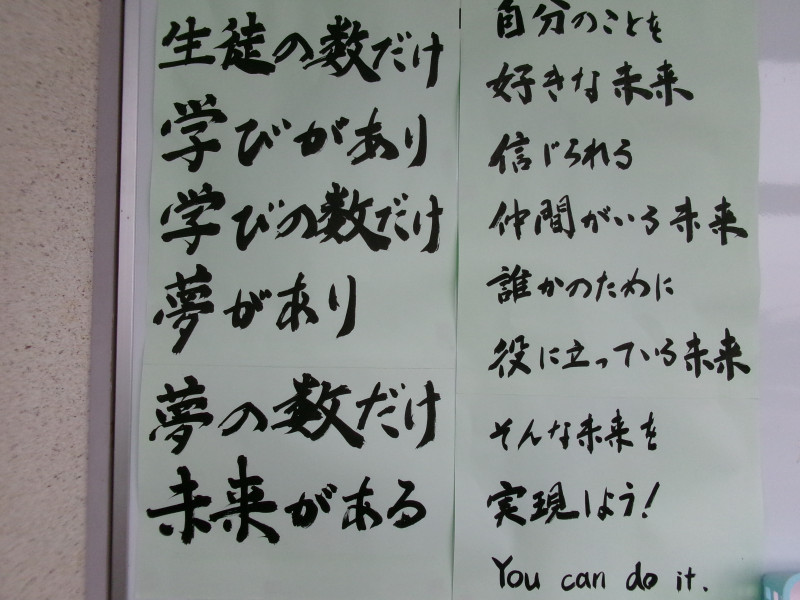 生徒の数だけ
学びがあり
学びの数だけ
夢があり
夢の数だけ
未来がある
自分のことを
好きな未来
信じられる
仲間がいる未来
誰かのために
役に立っている未来
そんな未来を
実現しよう!
You can do it.